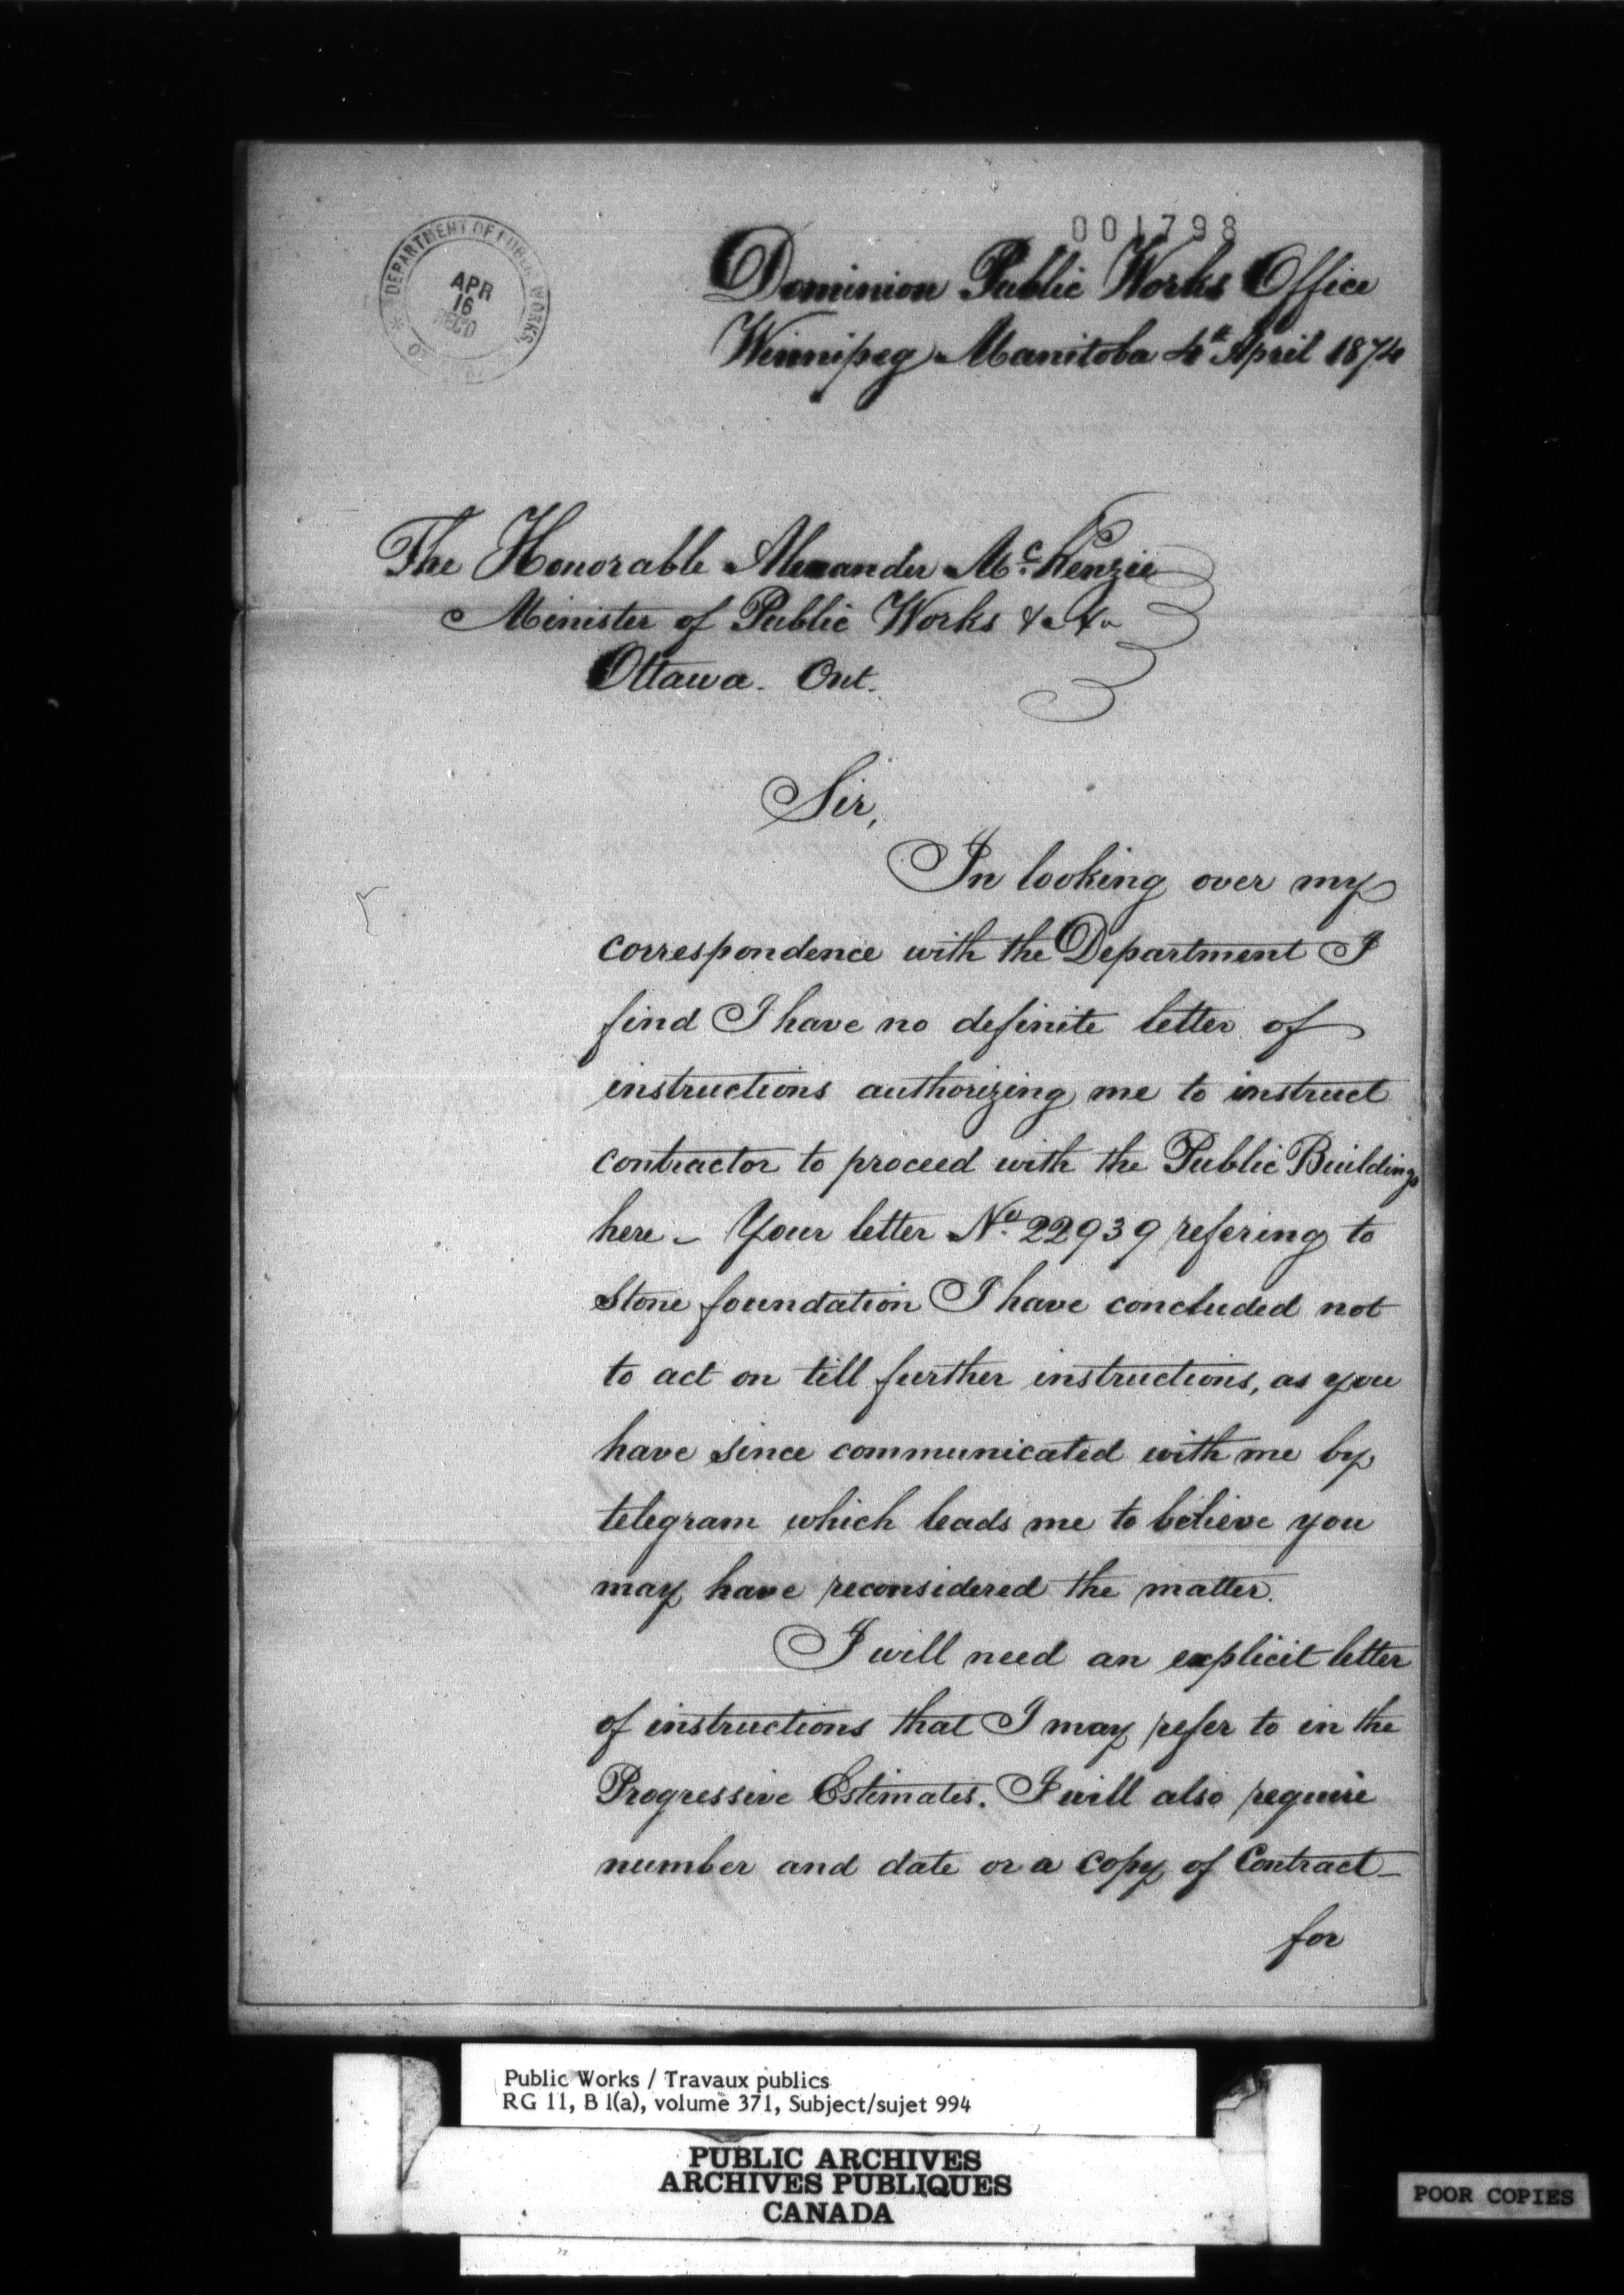 001798
DEPARTMENT OF PUBLIC WORKS,
APR
16
REC'D
Dominion Public Works Office
Winnipeg Manitoba 4th April 1874
The Honorable Alexander McKenzie
Minister of Public Works &c &c
Ottawa. Ont.
Sir,
In looking over my
correspondence with the Department I
find I have no definite letter of
instructions authorizing me to instruct
contractor to proceed with the Public Buildings
here – Your letter No. 22939 refering to
Stone foundation I have concluded not
to act on till further instructions, as you
have since communicated with me by
telegram which leads me to believe you
may have reconsidered the matter.
I will need an explicit letter
of instructions that I may refer to in the
Progressive Estimates. I will also require
number and date or a copy of Contract
for
Public Works / Travaux publics
RG 11, B 1(a), volume 371, Subject/sujet 994
PUBLIC ARCHIVES
ARCHIVES PUBLIQUES
CANADA
POOR COPIES